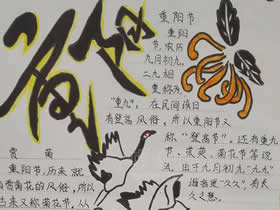 重阳
重阳节
重阳
节，农历
九月初九，
二九相
重，称为
"重九"。在民间该日
有登高风俗，所以重阳节又
称"登高节"。还有重九
节、茱萸、菊花节等说
法。由于九月初九"九九"
谐音是"久久"，有长
久之意。
赏菊
重阳节，历来就
有赏菊花的风俗，所以
古来又称菊花节。从